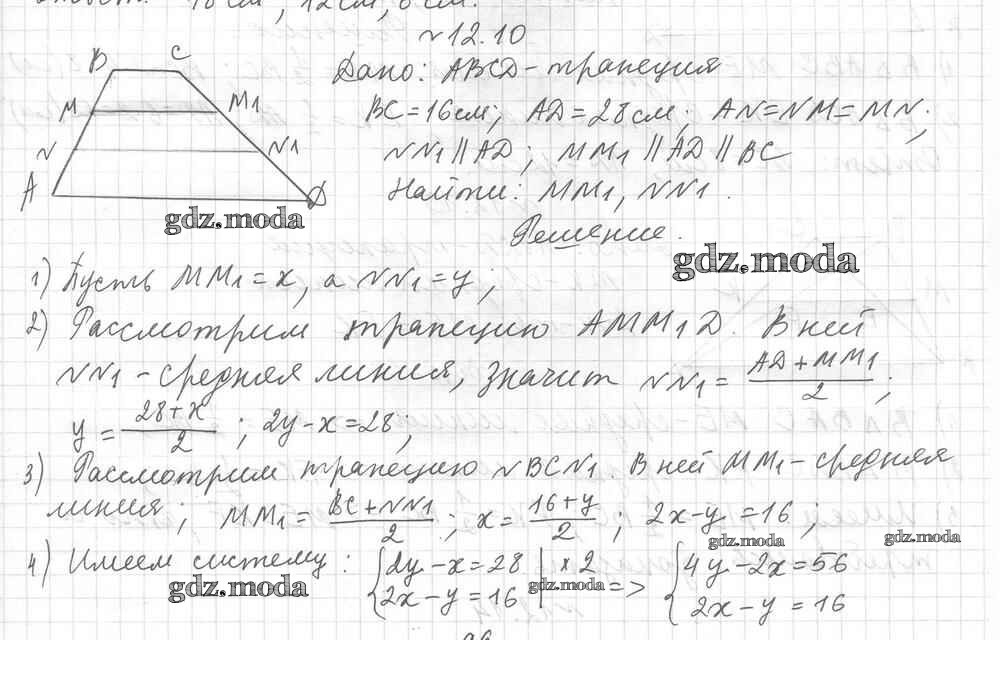 18 см, 12 см, 8 см.
№12.10
B C
Дано: ABCD - трапеция
M M1
BC = 16 см; AD = 28 см; AN = NM = MN;
N N1
NN1 || AD; MM1 || AD || BC
A D
Найти: MM1, NN1.
gdz.moda
Решение.
gdz.moda
1) Пусть MM1 = x, а NN1 = y;
2) Рассмотрим трапецию AMM1D. В ней
NN1 - средняя линия, значит NN1 = (AD + MM1)/2;
y = (28 + x)/2; 2y - x = 28;
3) Рассмотрим трапецию NBCN1. В ней MM1 - средняя
линия; MM1 = (BC + NN1)/2; x = (16 + y)/2; 2x - y = 16;
gdz.moda gdz.moda
4) Имеем систему: { 2y - x = 28 | × 2 => { 4y - 2x = 56
gdz.moda gdz.moda
2x - y = 16 2x - y = 16